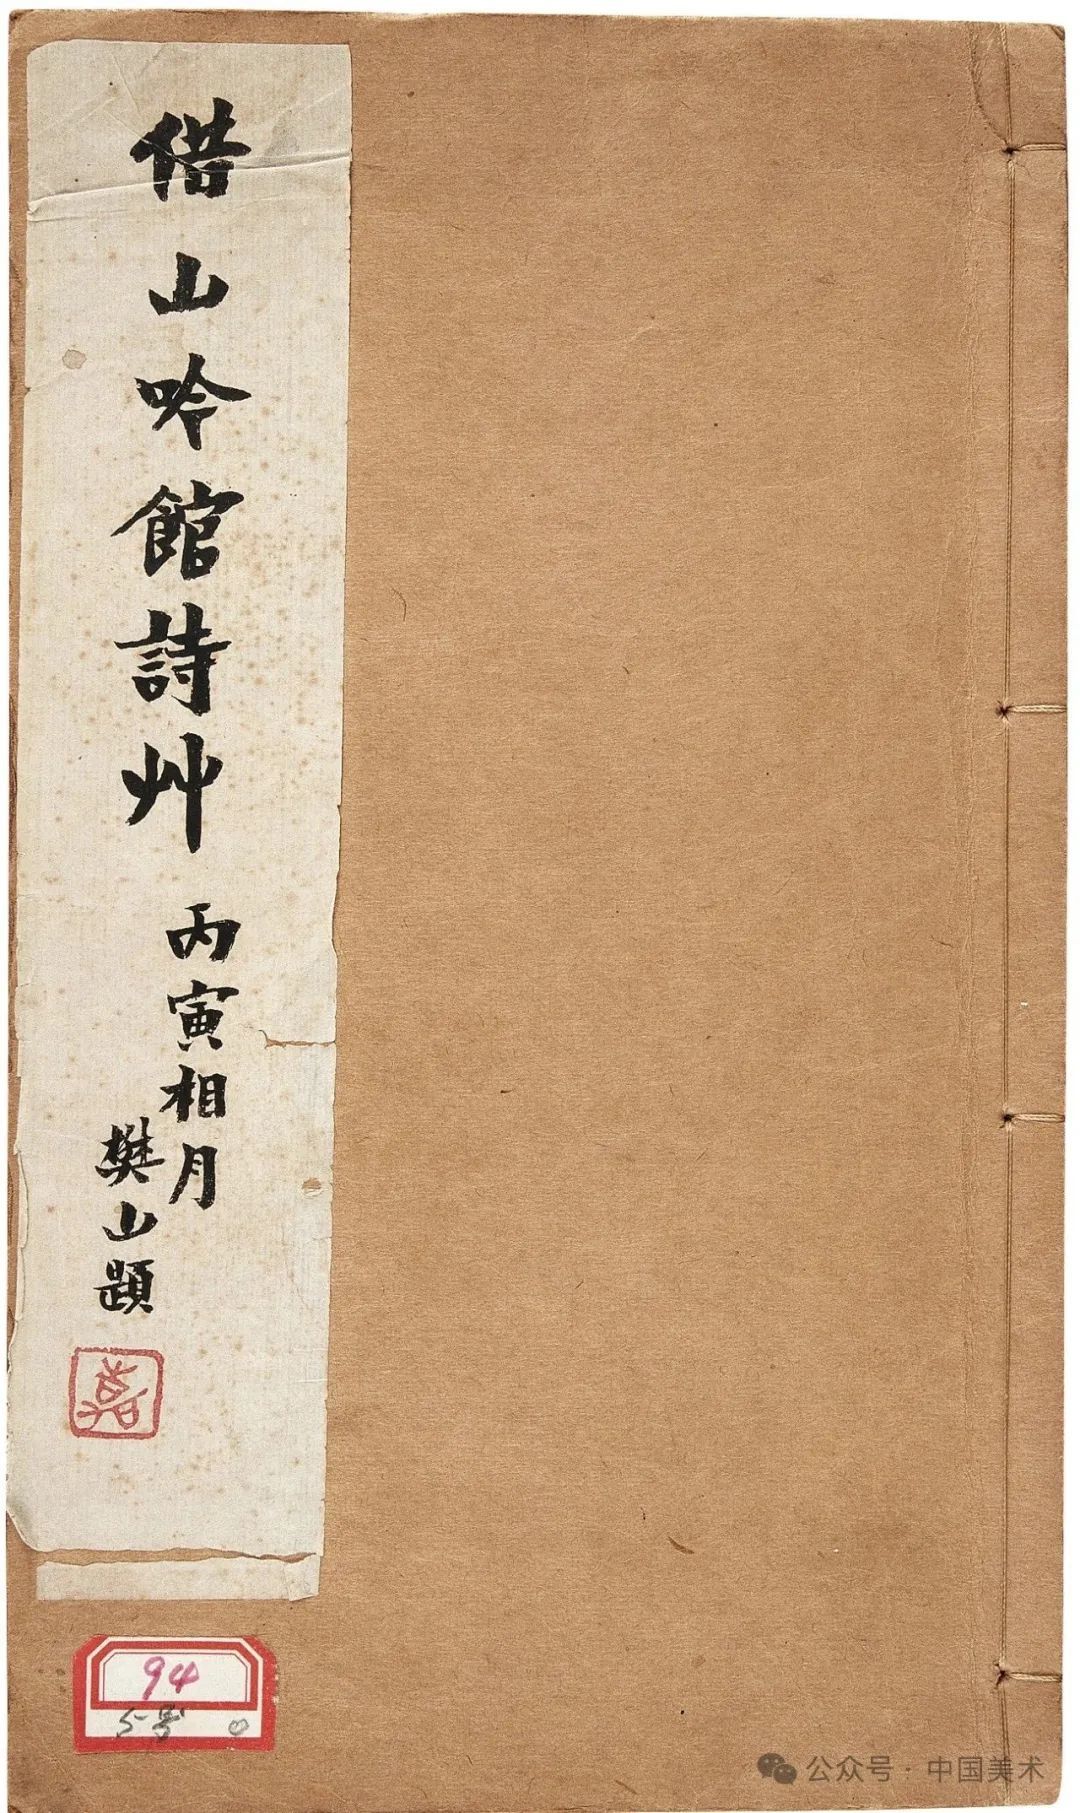 借山吟館詩艸
丙寅相月
樊山題
94
5号
公众号·中国美术